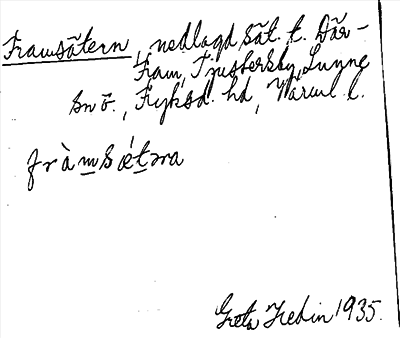 Framsätern, nedlagd sät. t. Där-
fram, Tjustersby, Lunne
sn ö., Fryksd. hd, Värml. l.
fràmsǽtəra
Greta Hedin 1935.